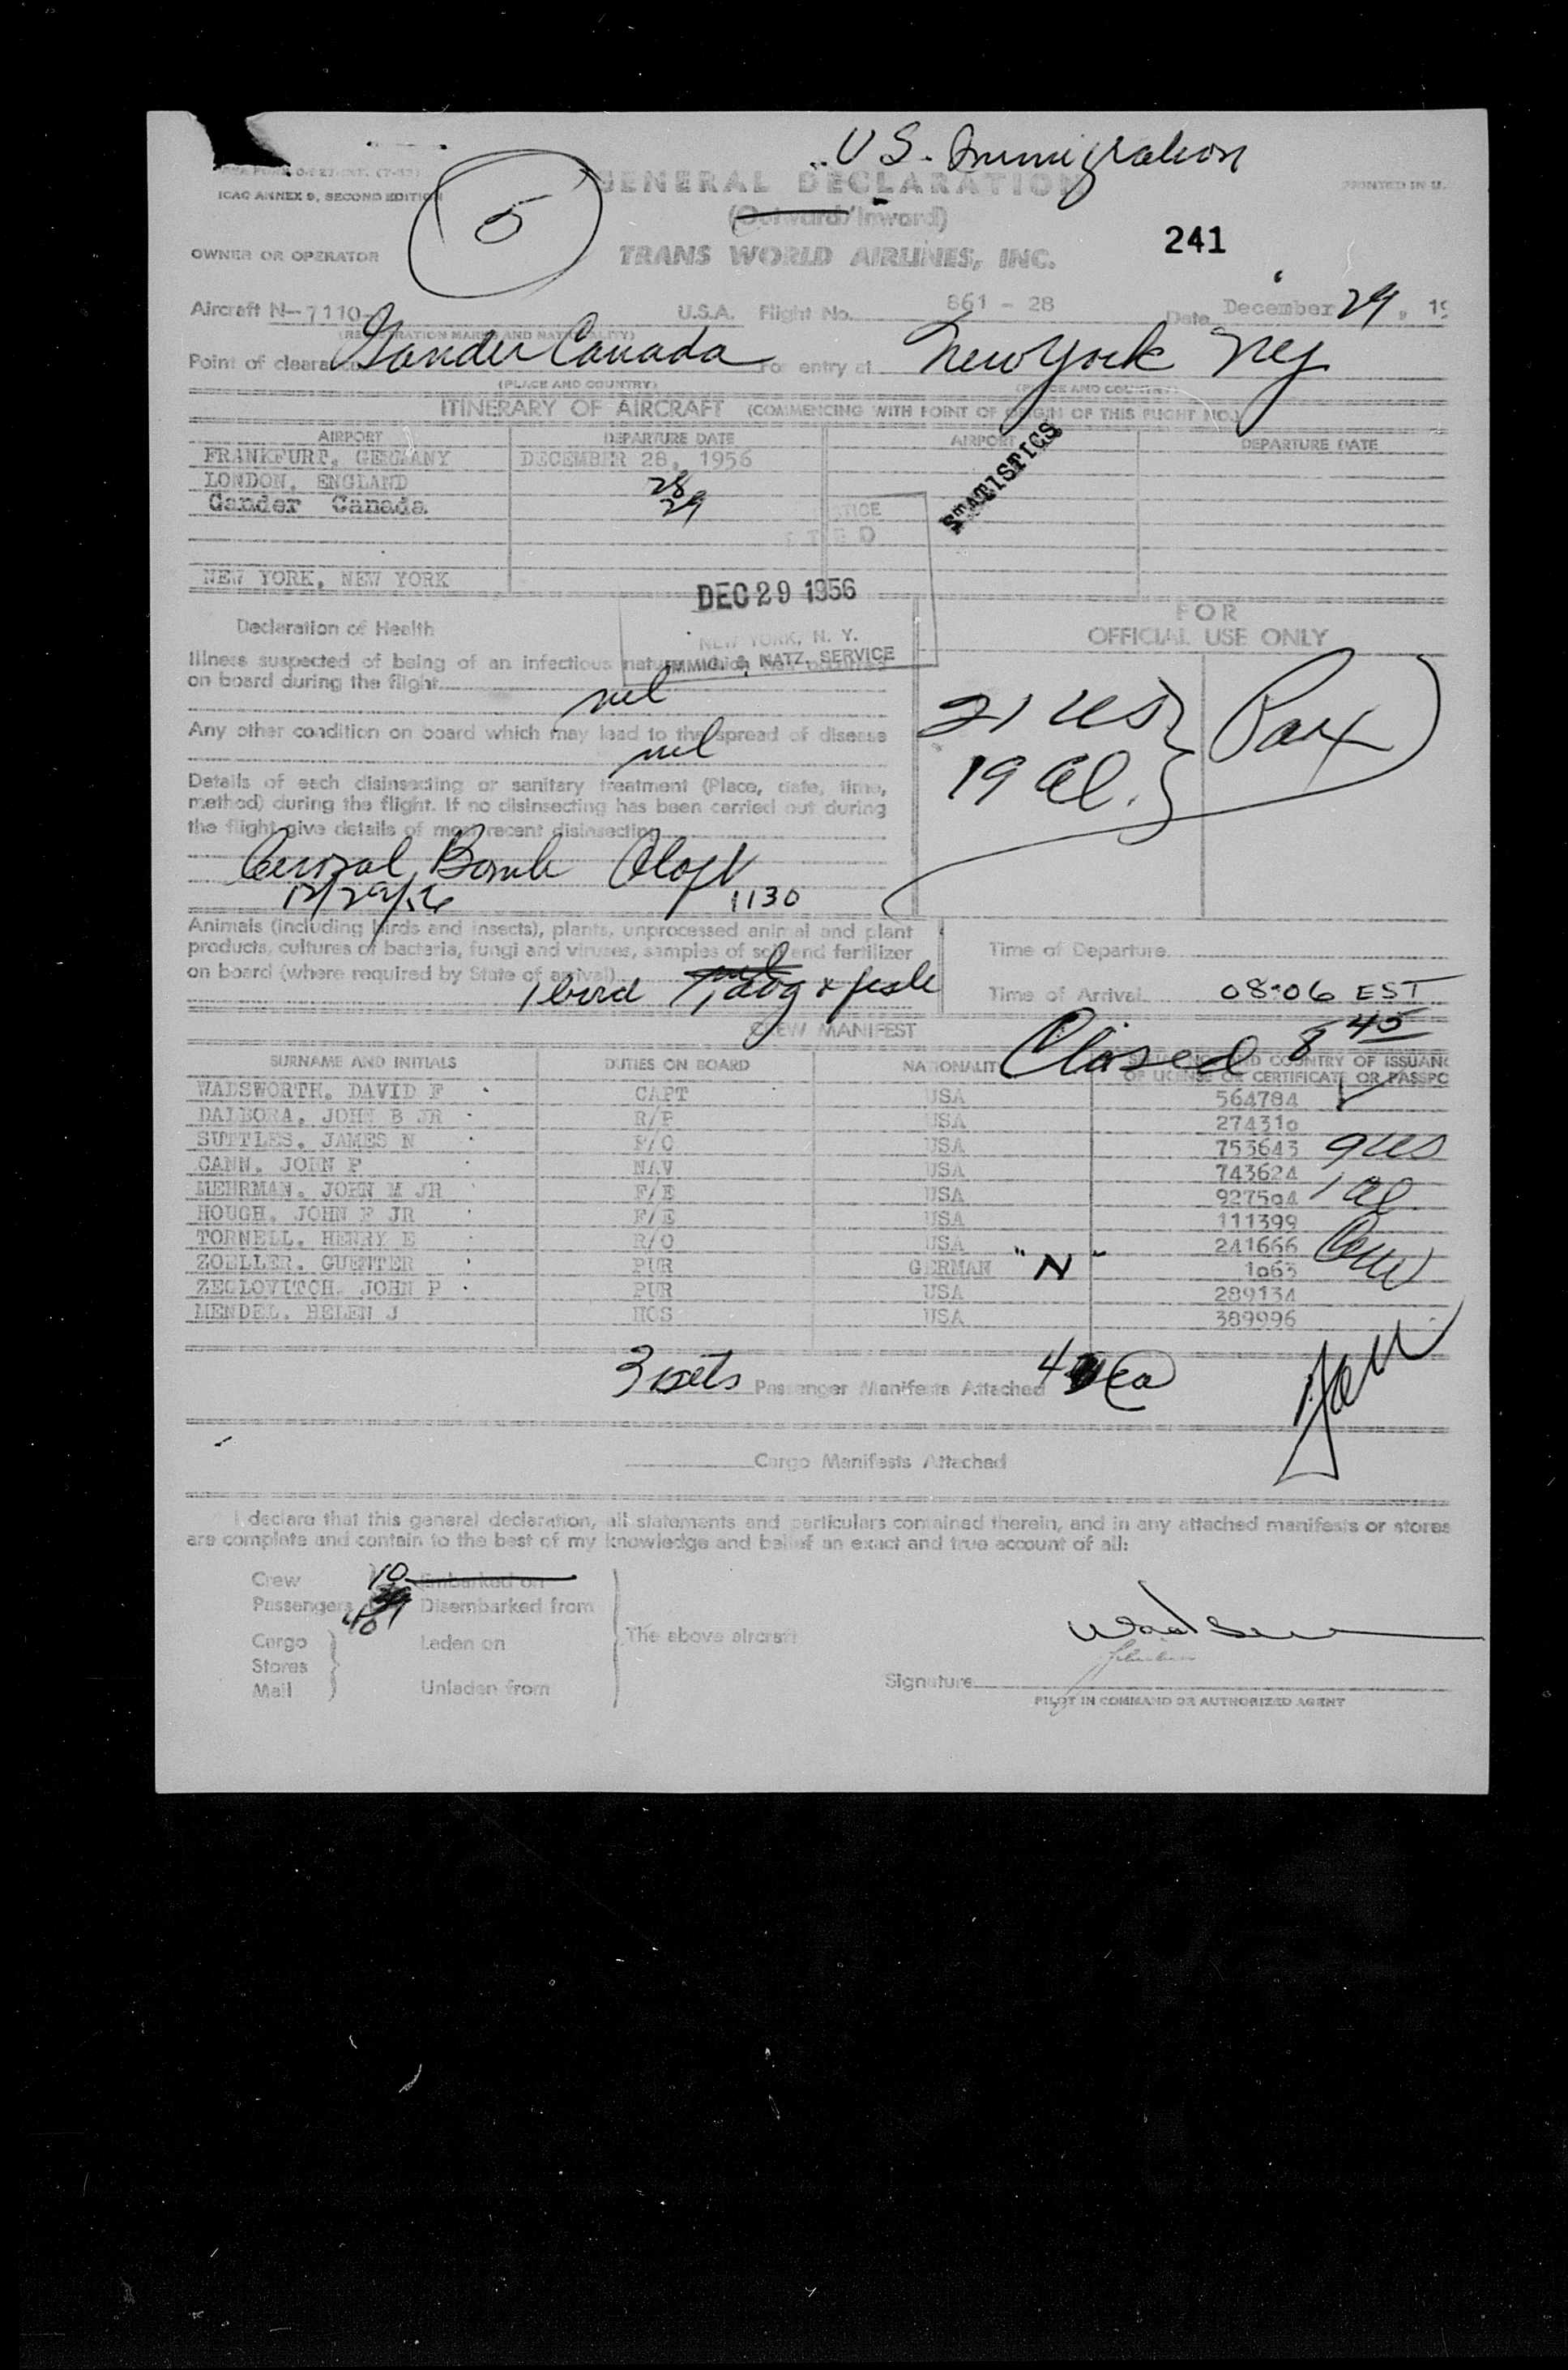 U S. Immigration
ICAO ANNEX 9, SECOND EDITION
5
GENERAL DECLARATION
PRINTED IN U.
(Outward/Inward)
OWNER OR OPERATOR
TRANS WORLD AIRLINES, INC.
241
Aircraft N-7110- U.S.A. Flight No. 861 - 28 Date December 29, 19
(REGISTRATION MARKS AND NATIONALITY)
Point of clearance Gander Canada For entry at New York NY
(PLACE AND COUNTRY) (PLACE AND COUNTRY)
ITINERARY OF AIRCRAFT (COMMENCING WITH POINT OF ORIGIN OF THIS FLIGHT NO.)
AIRPORT DEPARTURE DATE AIRPORT DEPARTURE DATE
FRANKFURT, GERMANY DECEMBER 28, 1956
LONDON, ENGLAND 28
Gander Canada 29
STATISTICS
NEW YORK, NEW YORK
DEC 29 1956
NEW YORK, N. Y.
IMMIG. & NATZ. SERVICE
Declaration of Health
FOR
OFFICIAL USE ONLY
Illness suspected of being of an infectious nature which has occurred
on board during the flight
nil
Any other condition on board which may lead to the spread of disease
nil
21 US
19 Al.
Pax
Details of each disinsecting or sanitary treatment (Place, date, time,
method) during the flight. If no disinsecting has been carried out during
the flight give details of most recent disinsecting
Aerosol Bomb Aloft
12/29/56 1130
Animals (including birds and insects), plants, unprocessed animal and plant
products, cultures of bacteria, fungi and viruses, samples of soil and fertilizer
on board (where required by State of arrival)
1 bird 1 dog
Time of Departure
Time of Arrival 08:06 EST
Closed 8 45
CREW MANIFEST
SURNAME AND INITIALS DUTIES ON BOARD NATIONALITY COUNTRY OF ISSUANC
OF LICENSE OR CERTIFICATE OR PASSPO
WADSWORTH, DAVID F CAPT USA 564784
DALBORA, JOHN B JR R/P USA 274310
SUTTLES, JAMES N F/O USA 753643
CANN, JOHN P NAV USA 743624
MEHRMAN, JOHN M JR F/E USA 927504
HOUGH, JOHN F JR F/E USA 111399
TORNELL, HENRY E R/O USA 241666
ZOELLER, GUENTER PUR GERMAN "N" 1063
ZEGLOVITCH, JOHN P PUR USA 289134
MENDEL, HELEN J HOS USA 389996
9 US
1 Al.
Crew
3 sets Passenger Manifests Attached 4 ea
Cargo Manifests Attached
I declare that this general declaration, all statements and particulars contained therein, and in any attached manifests or stores
are complete and contain to the best of my knowledge and belief an exact and true account of all:
Crew 10 Embarked on
Passengers 40 Disembarked from
Cargo Laden on
Stores
Mail Unladen from
The above aircraft
Signature
PILOT IN COMMAND OR AUTHORIZED AGENT